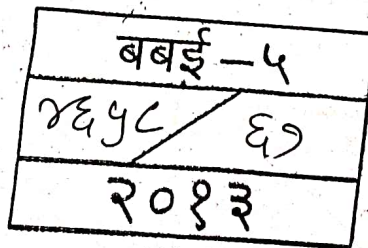 बबई - ५
४६५८ / ६७
२०१३